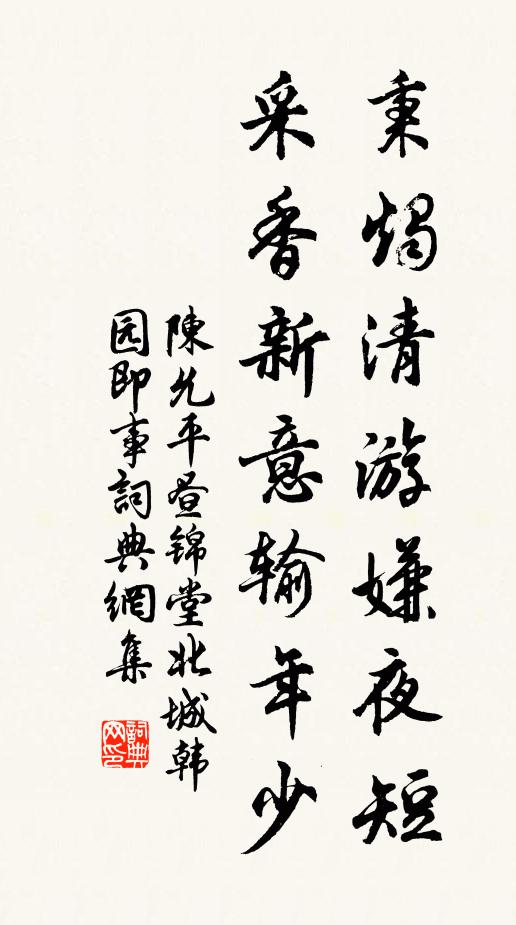 秉燭清游嫌夜短
采香新意輸年少
陳允平昼锦堂北城韩
园即事詞典網集
詞典网印